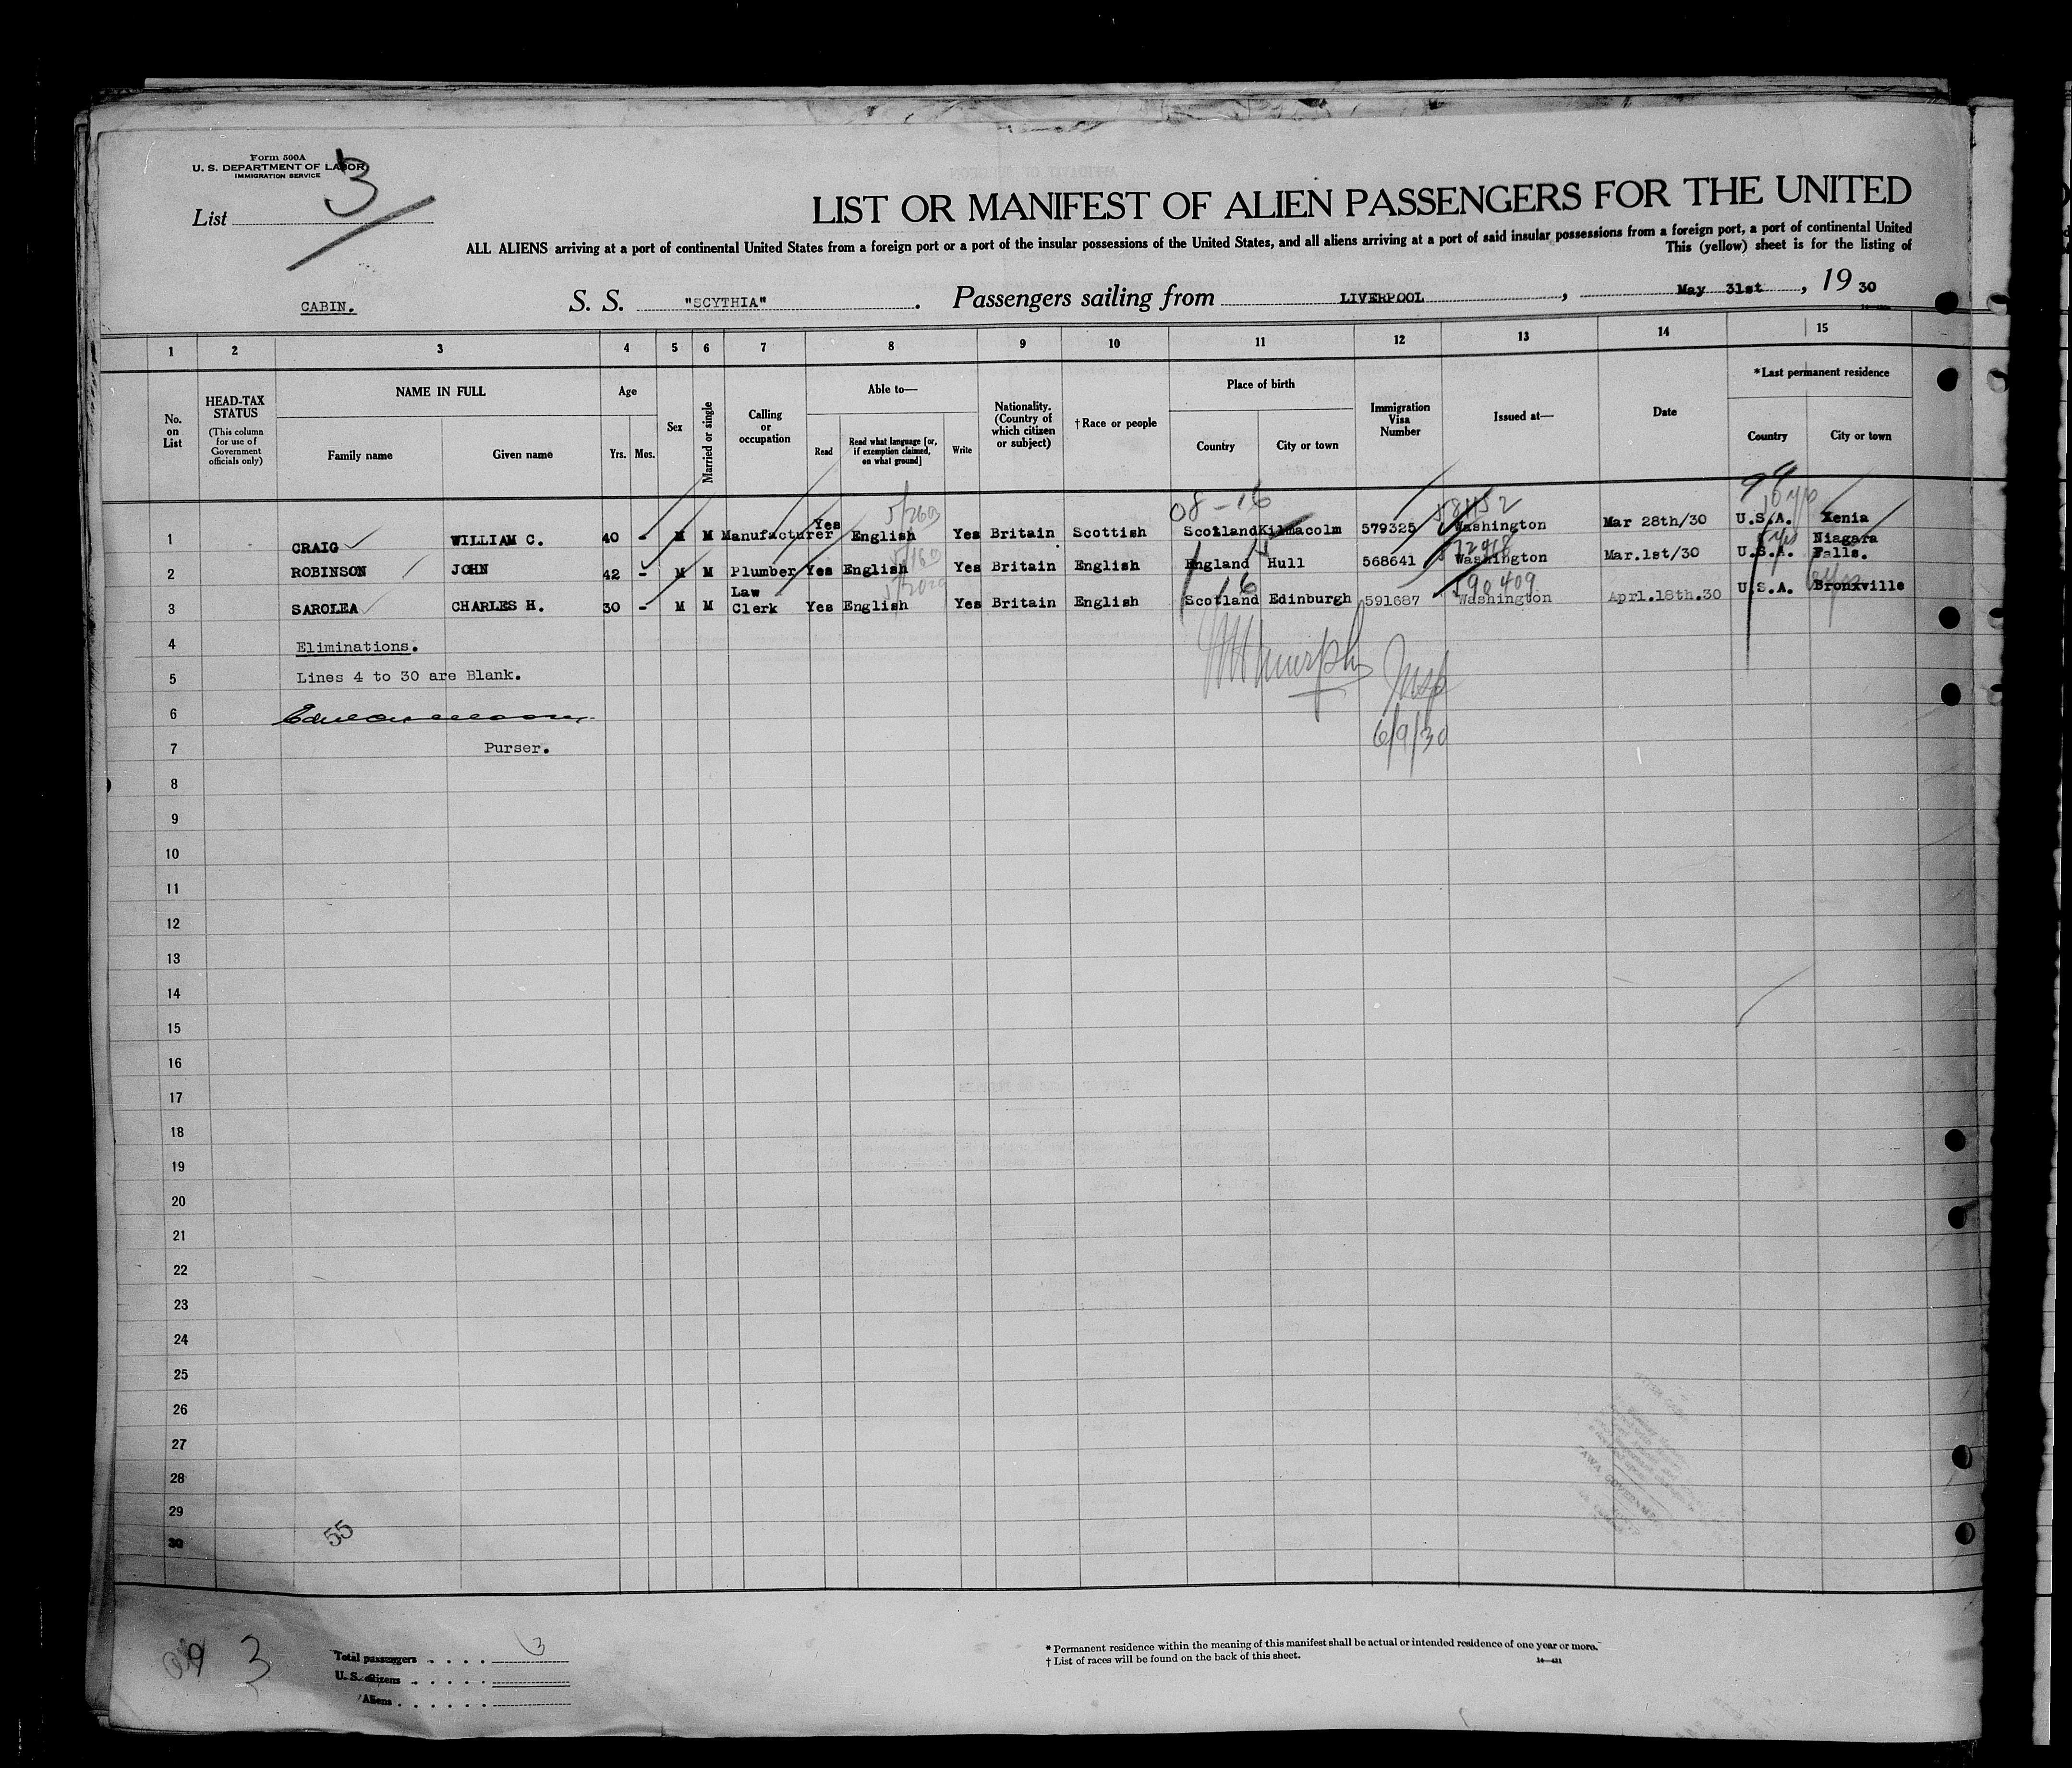 Form 500A
U. S. DEPARTMENT OF LABOR
IMMIGRATION SERVICE
List 3
LIST OR MANIFEST OF ALIEN PASSENGERS FOR THE UNITED
ALL ALIENS arriving at a port of continental United States from a foreign port or a port of the insular possessions of the United States, and all aliens arriving at a port of said insular possessions from a foreign port, a port of continental United
This (yellow) sheet is for the listing of
CABIN. S. S. "SCYTHIA". Passengers sailing from LIVERPOOL, May 31st, 19 30
1 2 3 4 5 6 7 8 9 10 11 12 13 14 15
No. on List
HEAD-TAX STATUS (This column for use of Government officials only)
NAME IN FULL
Family name Given name
Age
Yrs. Mos.
Sex
Married or single
Calling or occupation
Able to—
Read Read what language [or, if exemption claimed, on what ground] Write
Nationality. (Country of which citizen or subject)
†Race or people
Place of birth
Country City or town
Immigration Visa Number
Issued at—
Date
*Last permanent residence
Country City or town
08-16 58152 10 yrs
1 CRAIG WILLIAM C. 40 - M M Manufacturer Yes English Yes Britain Scottish Scotland Kilmacolm 579325 Washington Mar 28th/30 U.S.A. Xenia
2 ROBINSON JOHN 42 - M M Plumber Yes English Yes Britain English England Hull 568641 Washington Mar.1st/30 U.S.A. Niagara Falls.
590409
3 SAROLEA CHARLES H. 30 - M M Law Clerk Yes English Yes Britain English Scotland Edinburgh 591687 Washington Aprl.18th.30 U.S.A. Bronxville
4 Eliminations.
5 Lines 4 to 30 are Blank.
Murphy Insp
6
6/9/30
7 Purser.
8
9
10
11
12
13
14
15
16
17
18
19
20
21
22
23
24
25
26
27
28
29
30
55
9 3
Total passengers . . . . 3
U. S. citizens . . . . .
Aliens . . . . . .
* Permanent residence within the meaning of this manifest shall be actual or intended residence of one year or more.
† List of races will be found on the back of this sheet.